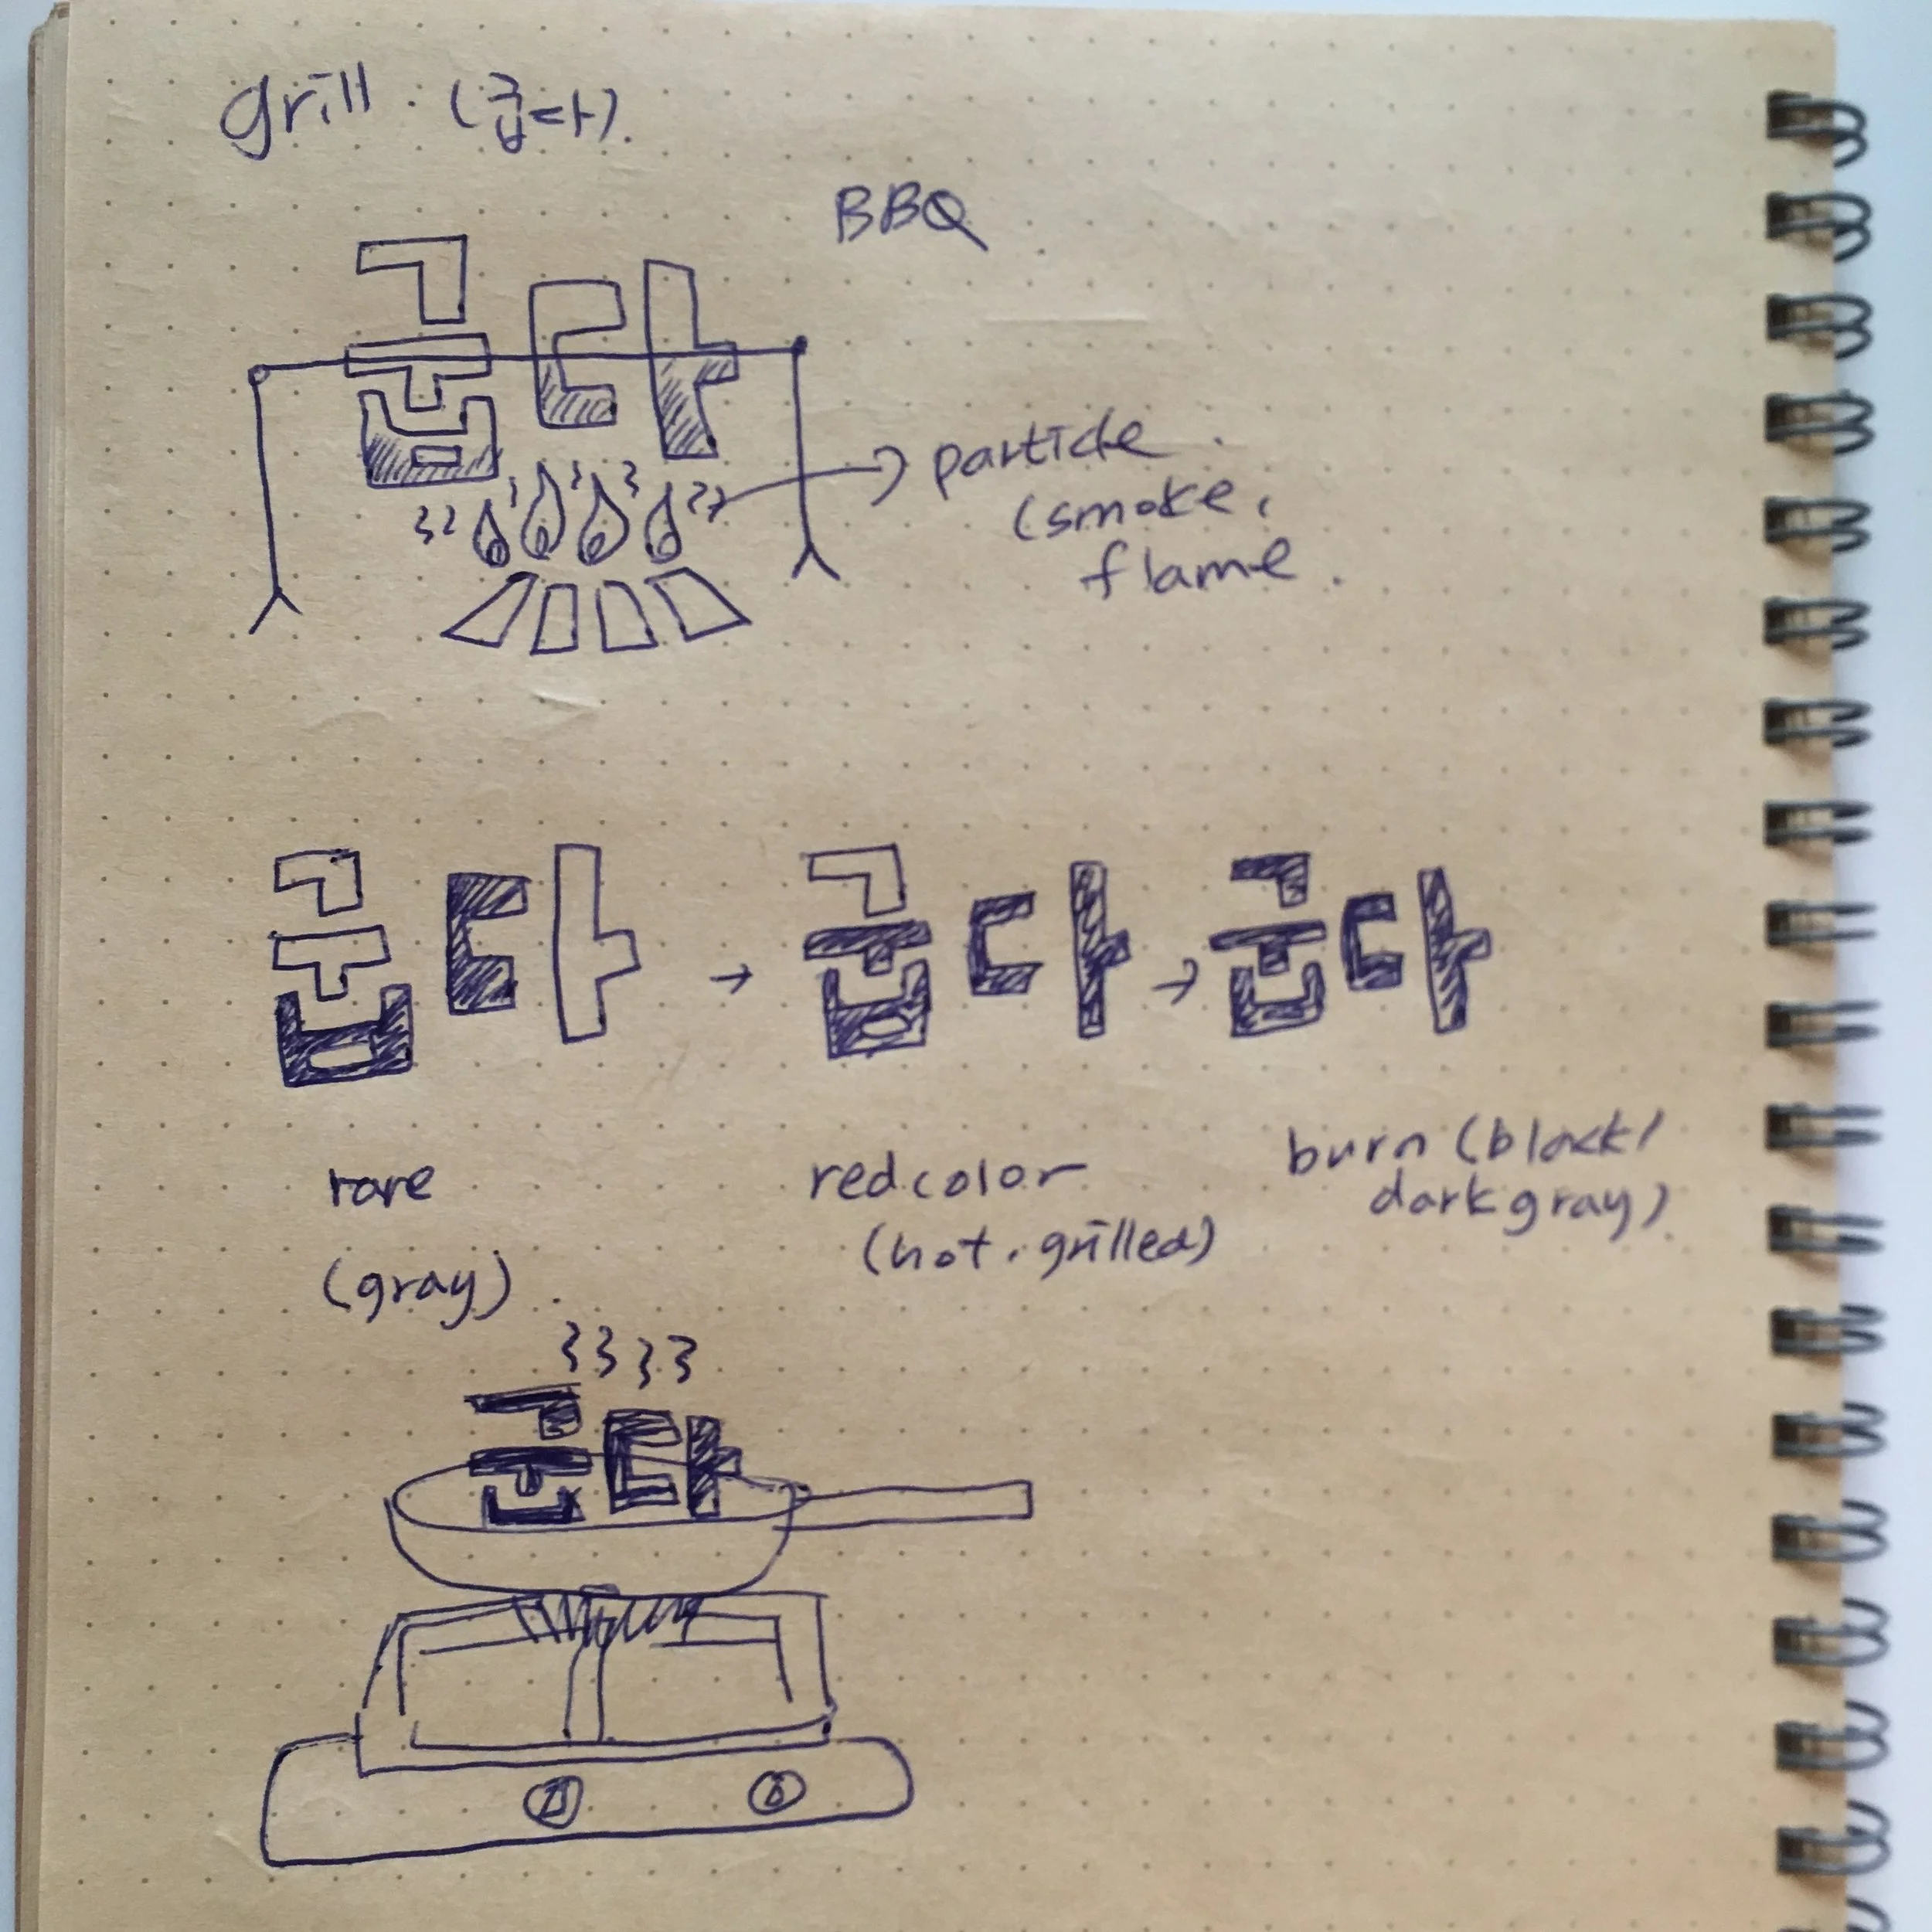 grill. (굽다).
BBQ
굽다
particle.
(smoke,
flame.
굽다 → 굽다 → 굽다
rare
(gray).
red color
(hot, grilled)
burn (black/
dark gray).
굽다